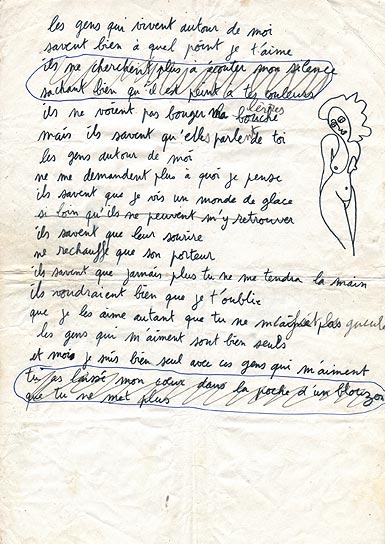 les gens qui vivent autour de moi
savent bien à quel point je t'aime
ils ne cherchent plus à écouter mon silence
sachant bien qu'il est peint à tes couleurs
ils ne voient pas bouger ma bouche lèvres
mais ils savent qu'elles parlent de toi
les gens autour de moi
ne me demandent plus à quoi je pense
ils savent que je vis un monde de glace
si loin qu'ils ne peuvent m'y retrouver
ils savent que leur sourire
ne réchauffe que son porteur
ils savent que jamais plus tu ne me tendra la main
ils voudraient bien que je t'oublie
que je les aime autant que tu ne m'aimes pas
les gens qui m'aiment sont bien seuls
et moi je suis bien seul avec ces gens qui m'aiment
tu as laissé mon cœur dans la poche d'un blouzon
que tu ne met plus